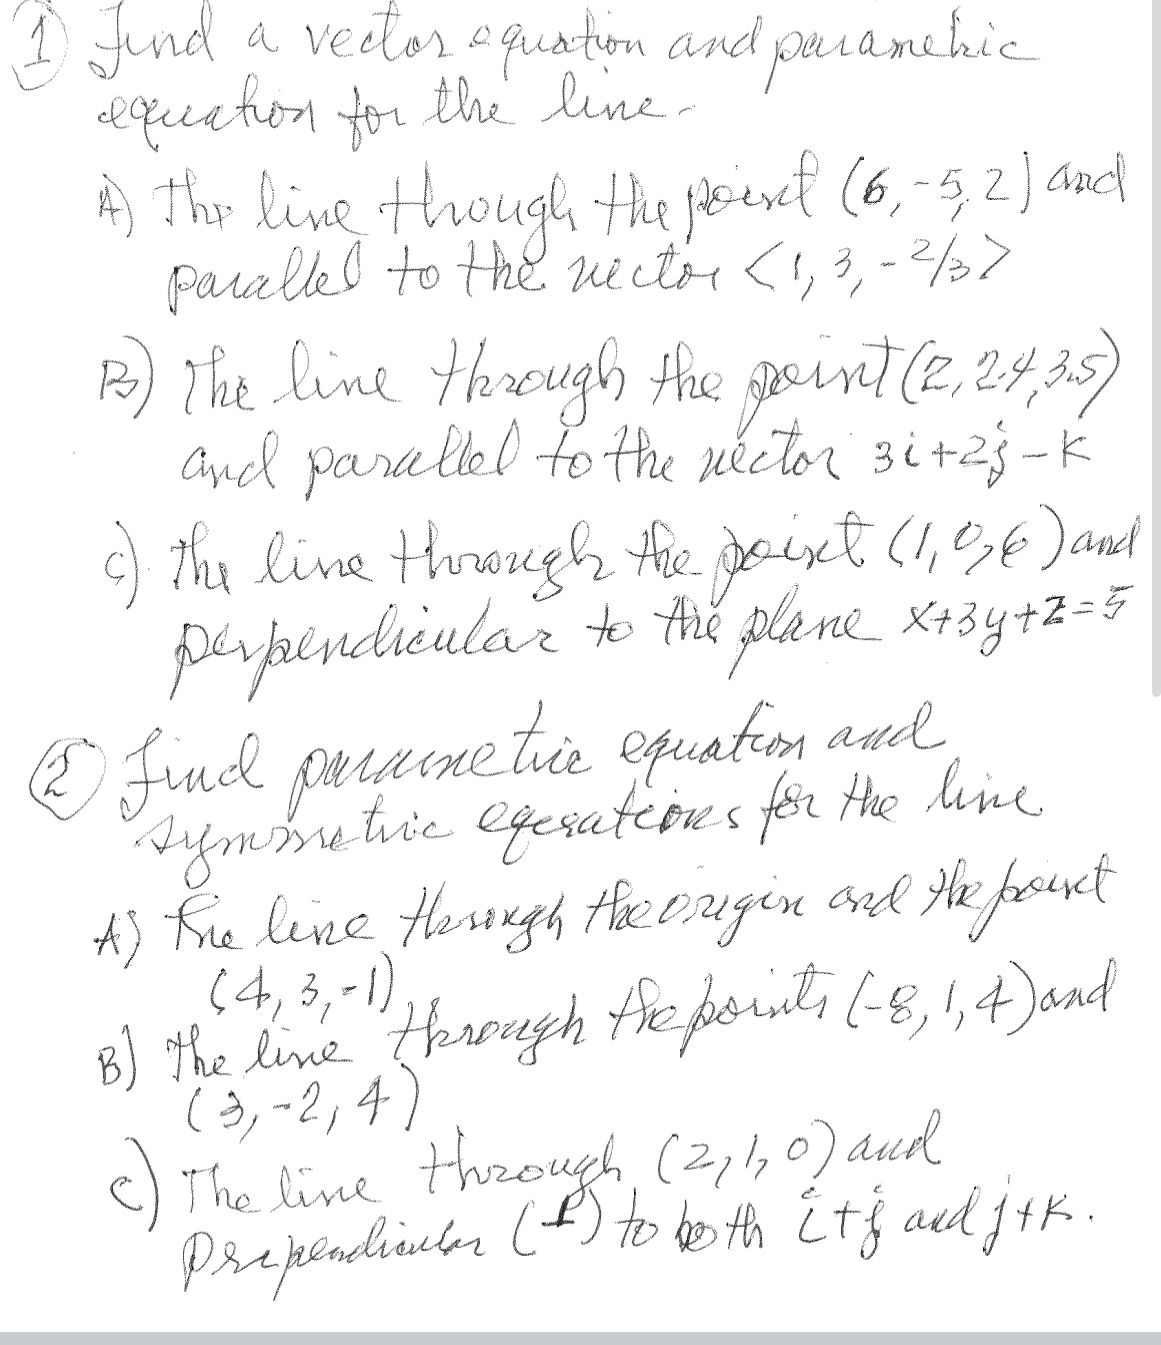 ① Find a vector equation and parametric
equation for the line.
A) The line through the point (6, -5, 2) and
parallel to the vector <1, 3, -2/3>
B) The line through the point (2, 2.4, 3.5)
and parallel to the vector 3i+2j-k
C) The line through the point (1, 0, 6) and
perpendicular to the plane x+3y+z=5
② Find parametric equation and
symmetric equations for the line
A) The line through the origin and the point
(4, 3, -1)
B) The line through the points (-8, 1, 4) and
(3, -2, 4)
C) The line through (2, 1, 0) and
Perpendicular (⊥) to both i+j and j+k.